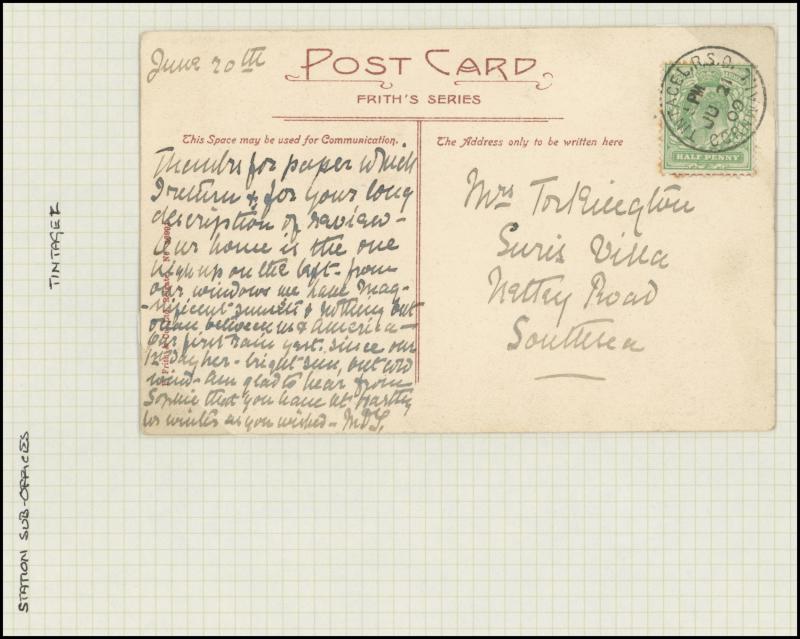 June 20th
POST CARD
FRITH'S SERIES
This Space may be used for Communication.
The Address only to be written here
TINTAGEL R.S.O.
CORNWALL
PM
JU 21
HALF PENNY
Thanks for paper which
I return & for your long
description of review –
Our home is the one
high up on the left – from
our windows we have mag-
-nificent sunsets & nothing but
ocean between us & America –
Our first rain yest. since our
12th day her – bright sun, but cold
wind – Am glad to hear from
Sophie that you have at
for winter as you wished –
Mrs Torkington
Villa
Road
Southsea
TINTAGEL
STATION SUB-OFFICES